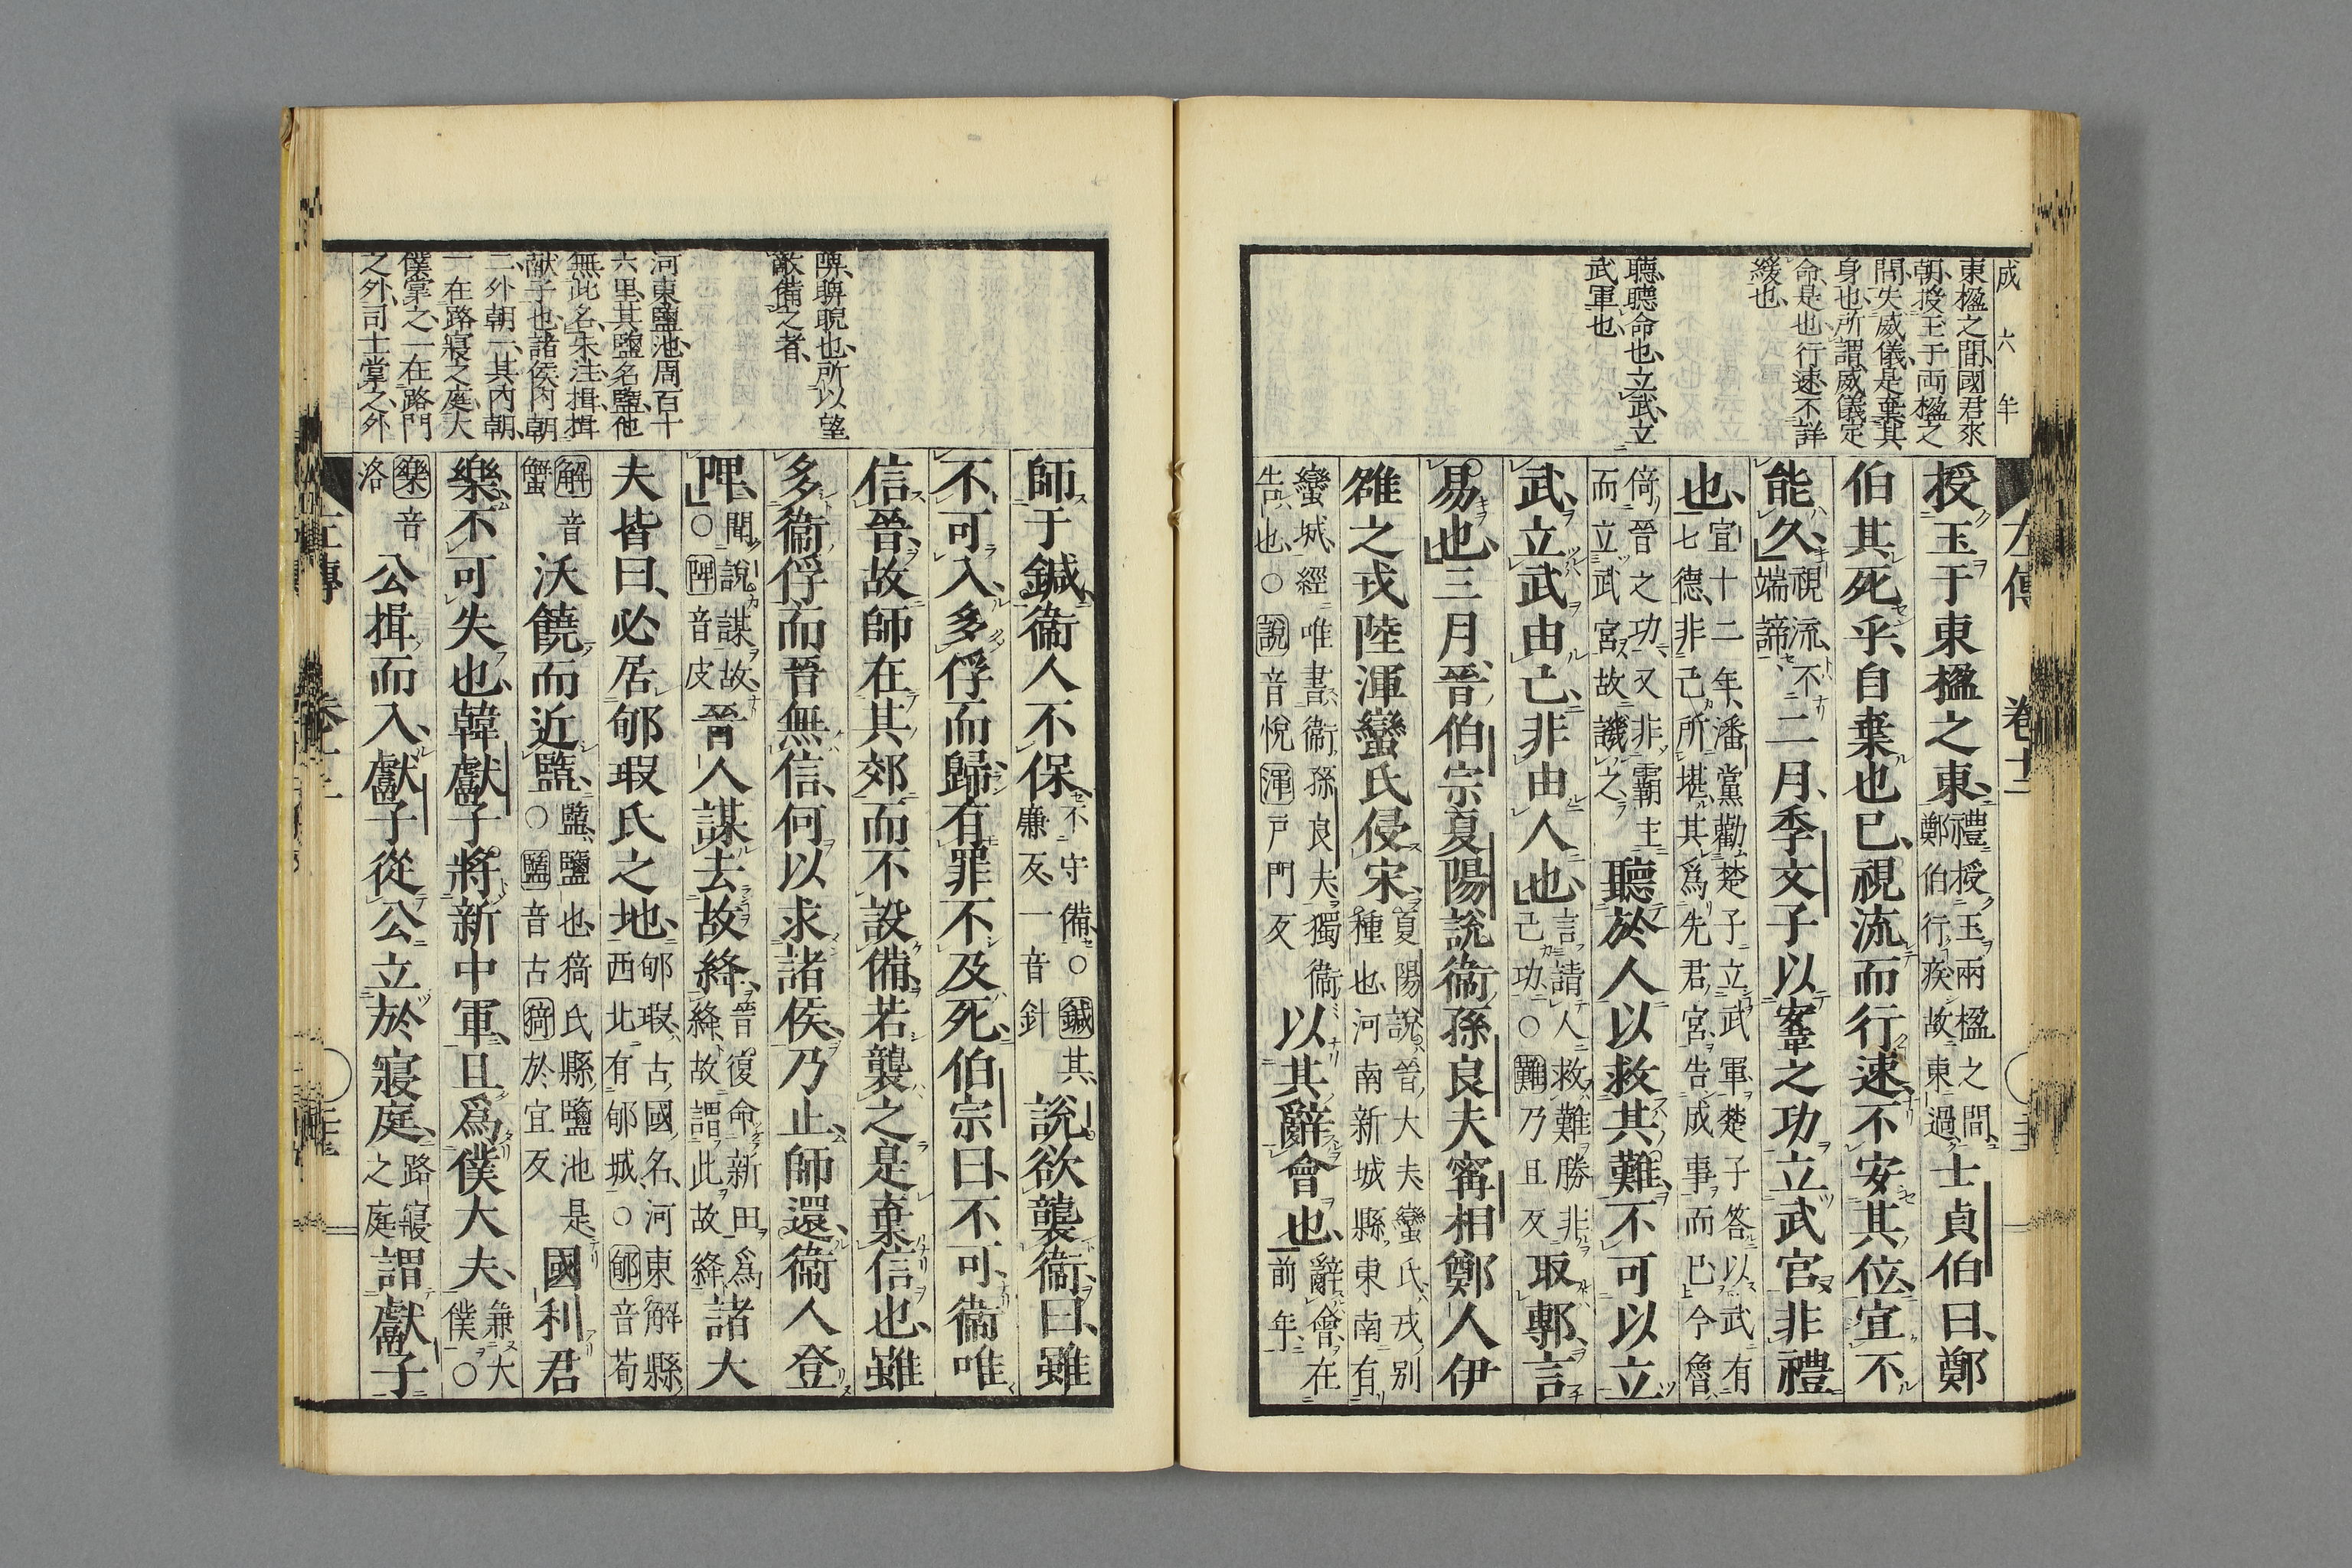 成六年
東楹之間國君來
朝授玉于兩楹之
間失威儀是棄其
身也所謂威儀定
命是也行速不詳
緩也
聽聽命也立武立
武軍也
左傳 卷十二
授玉于東楹之東禮授玉兩楹之間鄭伯行疾故東過士貞伯曰鄭
伯其死乎自棄也已視流而行速不安其位宜不
能久視流不端諦二月季文子以鞌之功立武宮非禮
也宣十二年潘黨勸楚子立武軍楚子答以武有七德非己所堪其爲先君宮告成事而已今魯
倚晉之功又非霸主而立武宮故譏之聽於人以救其難不可以立
武立武由己非由人也言請人救難勝非己功○難乃旦反取鄟言
易也三月晉伯宗夏陽說衞孫良夫甯相鄭人伊
雒之戎陸渾蠻氏侵宋夏陽說晉大夫蠻氏戎別種也河南新城縣東南有
蠻城經唯書衞孫良夫獨衞告也○說音悅渾戶門反以其辭會也辭會在前年
陴睥睨也所以望
敵備之者
河東鹽池周百十
六里其鹽名鹽他
無此名朱注揖揖
献子也諸侯內朝
二外朝一其內朝
一在路寢之庭大
僕掌之一在路門
之外司士掌之外
師于鍼衞人不保不守備○鍼其廉反一音針說欲襲衞曰雖
不可入多俘而歸有罪不及死伯宗曰不可衞唯
信晉故師在其郊而不設備若襲之是棄信也雖
多衞俘而晉無信何以求諸侯乃止師還衞人登
陴聞說謀故○陴音皮晉人謀去故絳晉復命新田爲絳故謂此故絳諸大
夫皆曰必居郇瑕氏之地郇瑕古國名河東解縣西北有郇城○郇音荀
解音蟹沃饒而近盬盬鹽也猗氏縣鹽池是○盬音古猗於宜反國利君
樂不可失也韓獻子將新中軍且爲僕大夫兼大僕○
樂音洛公揖而入獻子從公立於寢庭路寢之庭謂獻子
左傳 卷十二